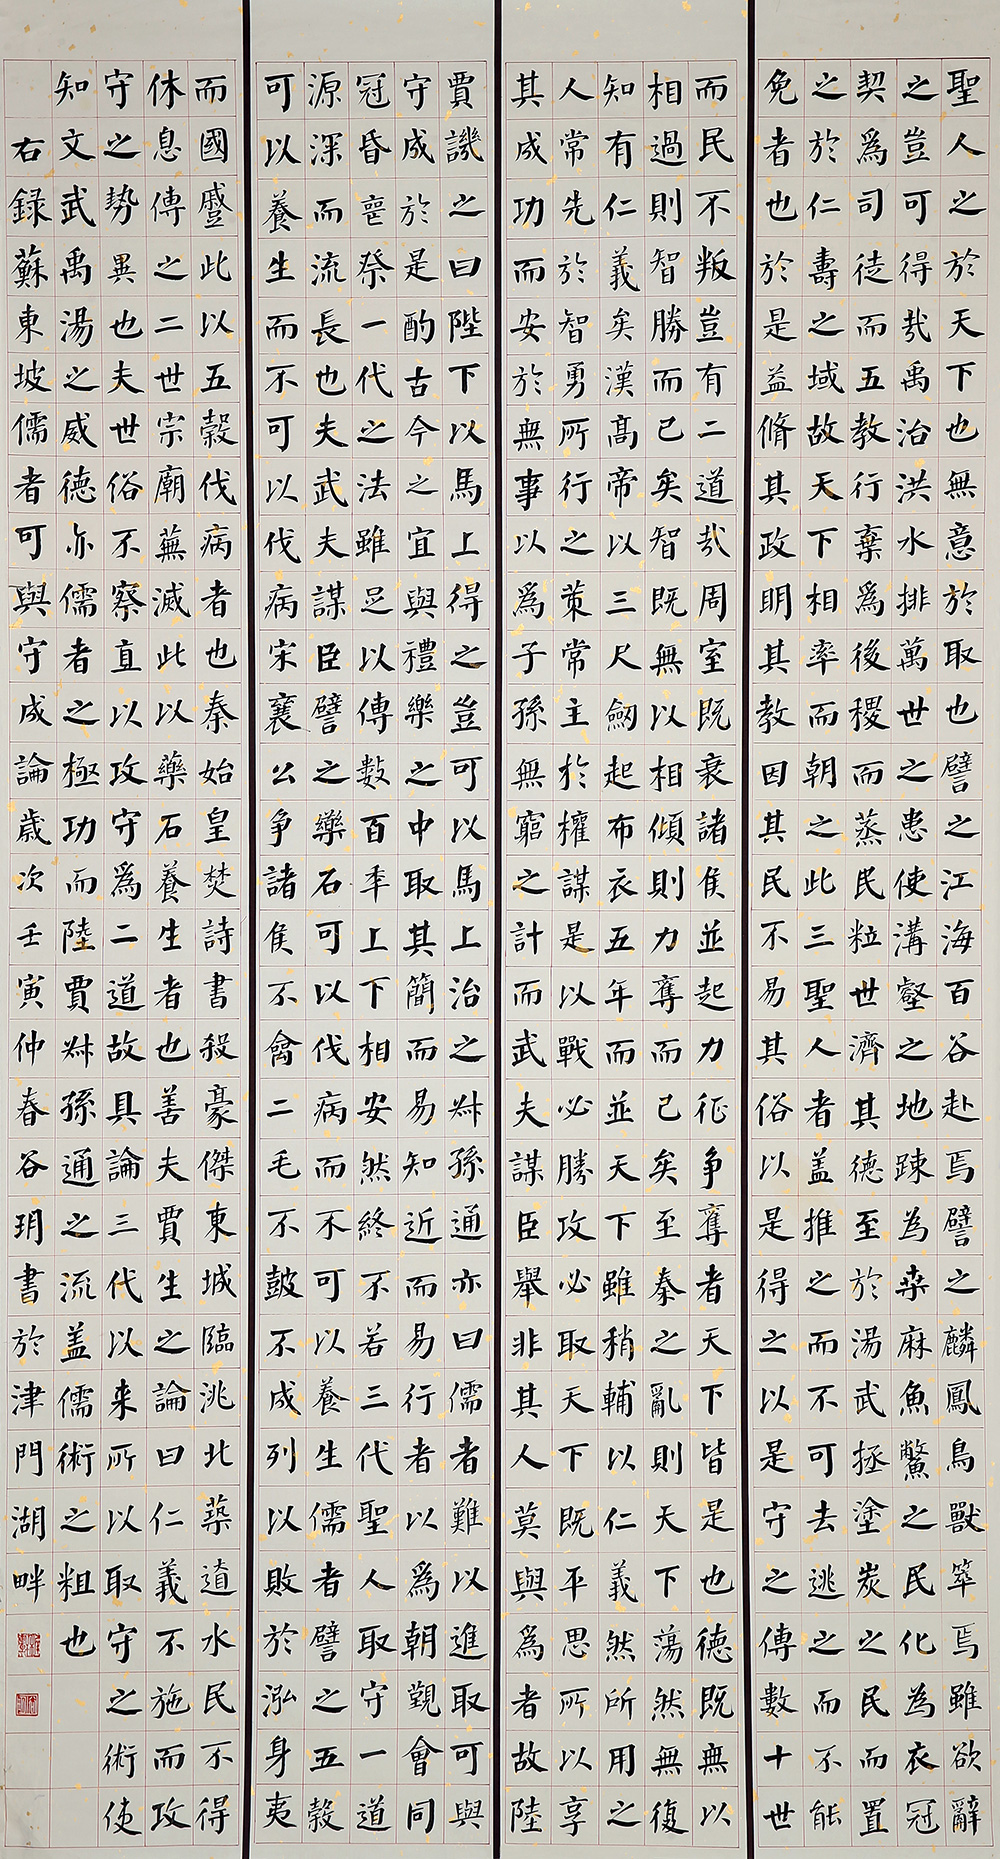 聖人之於天下也無意於取也譬之江海百谷赴焉譬之麟鳳鳥獸萃焉雖欲辭
之豈可得哉禹治洪水排萬世之患使溝壑之地疎為桑麻魚鱉之民化為衣冠
契爲司徒而五教行棄爲後稷而蒸民粒世濟其德至於湯武拯塗炭之民而置
之於仁壽之域故天下相率而朝之此三聖人者盖推之而不可去逃之而不能
免者也於是益脩其政明其教因其民不易其俗以是得之以是守之傳數十世
而民不叛豈有二道哉周室既衰諸侯並起力征争奪者天下皆是也德既無以
相過則智勝而已矣智既無以相傾則力奪而已矣至秦之亂則天下蕩然無復
知有仁義矣漢髙帝以三尺劔起布衣五年而並天下雖稍輔以仁義然所用之
人常先於智勇所行之策常主於權謀是以戰必勝攻必取天下既平思所以享
其成功而安於無事以爲子孫無窮之計而武夫謀臣舉非其人莫與爲者故陸
賈譏之曰陛下以馬上得之豈可以馬上治之叔孫通亦曰儒者難以進取可與
守成於是酌古今之宜與禮樂之中取其簡而易知近而易行者以爲朝覲會同
冠昏喪祭一代之法雖足以傳數百年上下相安然終不若三代聖人取守一道
源深而流長也夫武夫謀臣譬之藥石可以伐病而不可以養生儒者譬之五穀
可以養生而不可以伐病宋襄公争諸侯不禽二毛不鼓不成列以敗於泓身夷
而國蹙此以五穀伐病者也秦始皇焚詩書殺豪傑東城臨洮北築遼水民不得
休息傳之二世宗廟蕪滅此以藥石養生者也善夫賈生之論曰仁義不施而攻
守之勢異也夫世俗不察直以攻守爲二道故具論三代以来所以取守之術使
知文武禹湯之威德亦儒者之極功而陸賈叔孫通之流盖儒術之粗也
右録蘇東坡儒者可與守成論歲次壬寅仲春谷玥書於津門湖畔